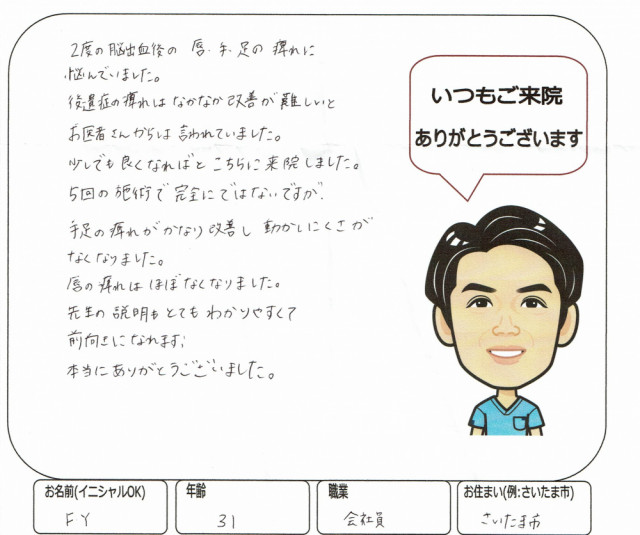 2度の脳出血後の 唇・手・足の 痺れに
悩んでいました。
後遺症の痺れは なかなか 改善が 難しいと
お医者さんからは 言われていました。
少しでも 良くなればと こちらに 来院しました。
5回の 施術で 完全にではないですが、
手足の 痺れが かなり 改善し 動かしにくさが
なくなりました。
唇の 痺れは ほぼ なくなりました。
先生の 説明も とても わかりやすくて
前向きになれます。
本当に ありがとうございました。
いつもご来院
ありがとうございます
お名前(イニシャルOK)
FY
年齢
31
職業
会社員
お住まい(例:さいたま市)
さいたま市